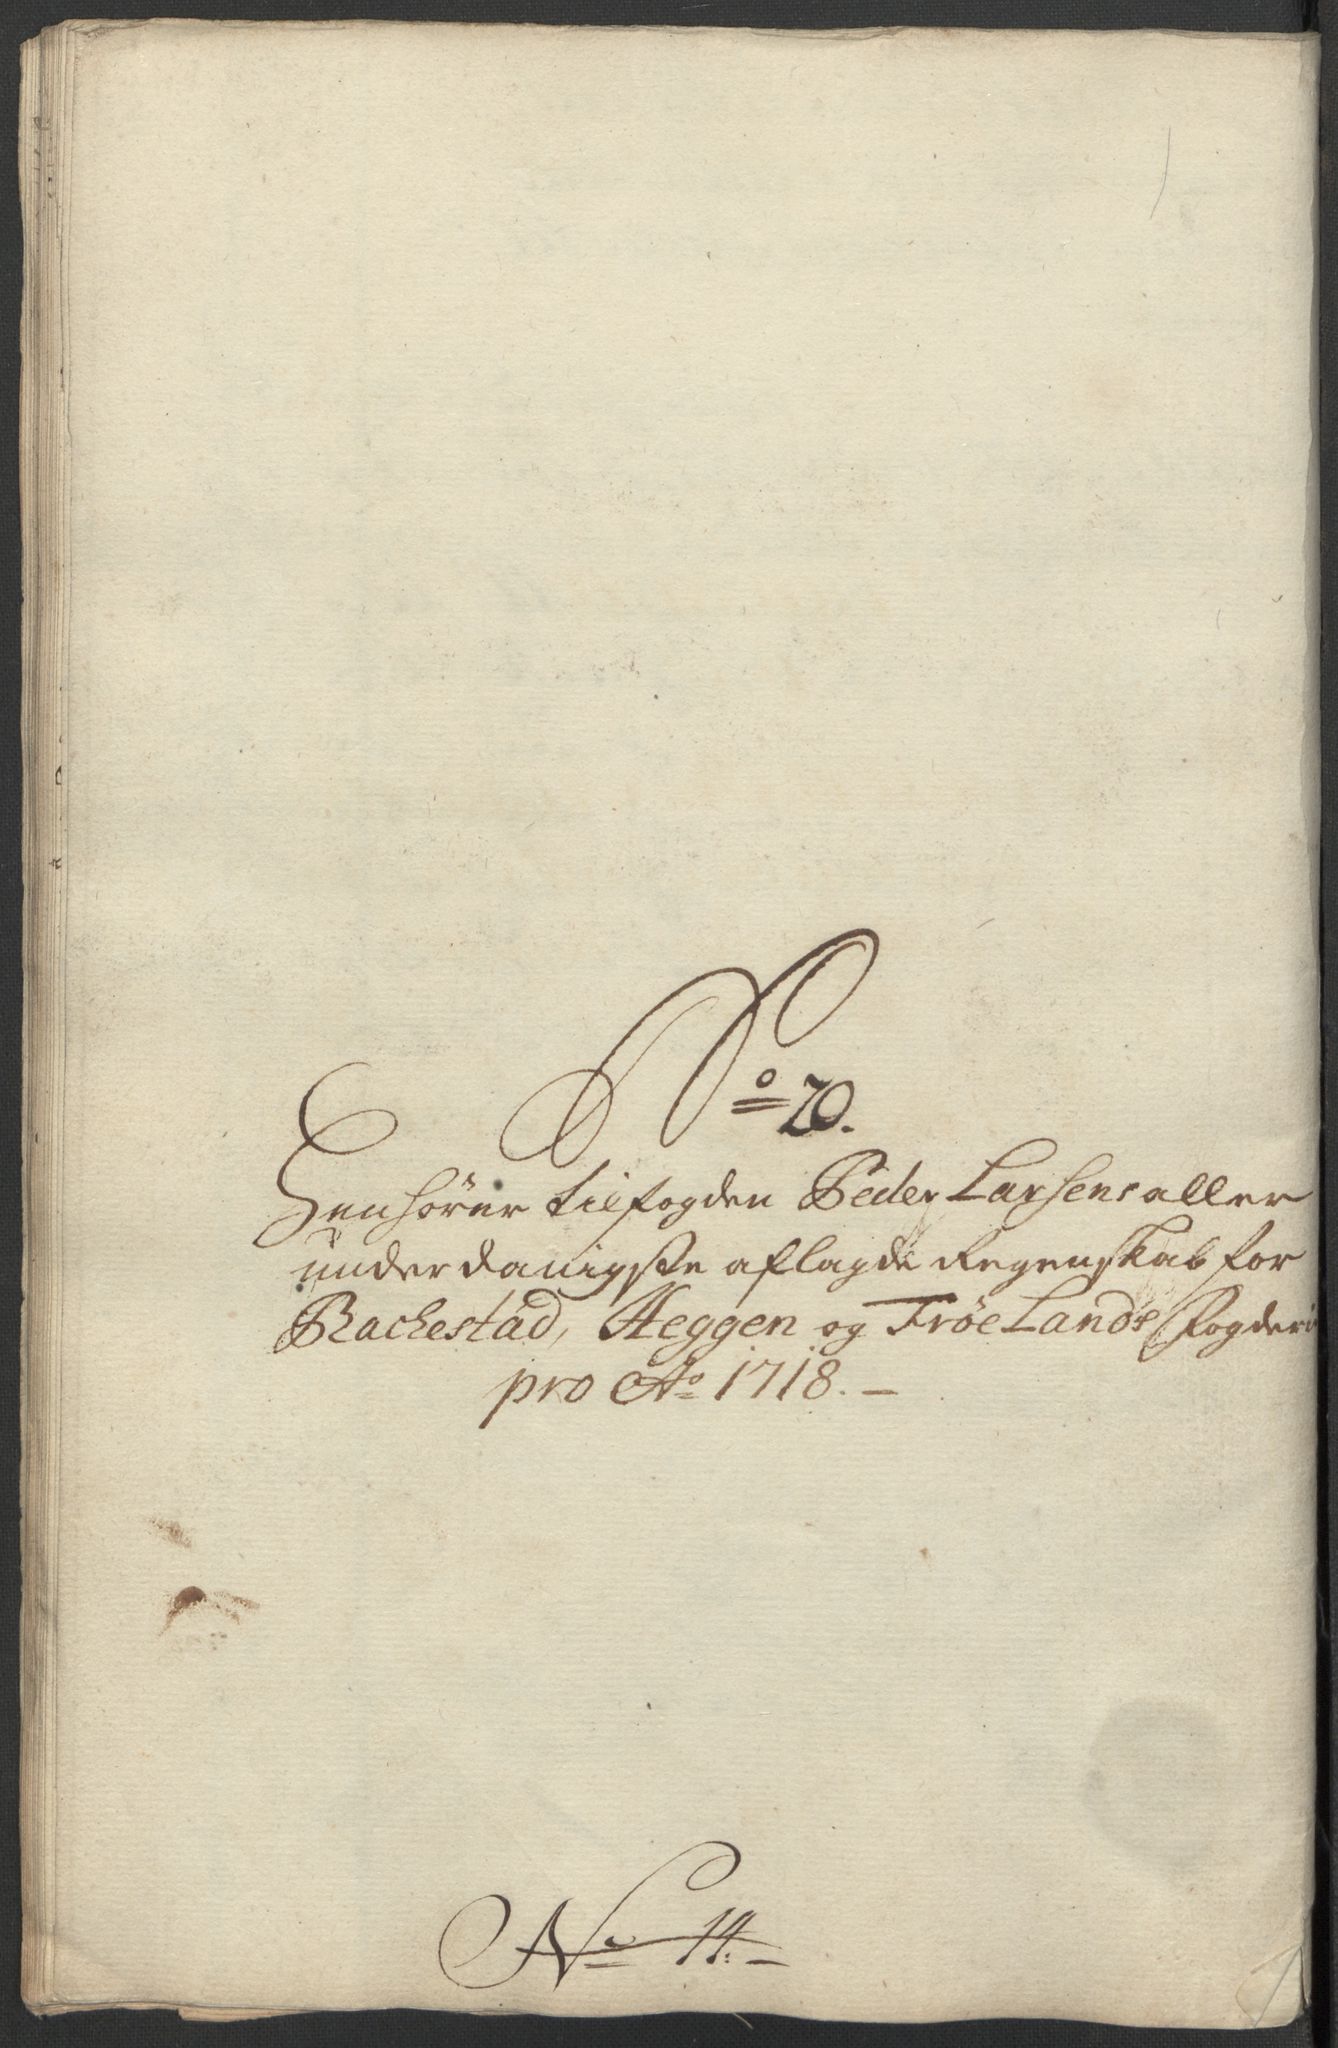 No 20.
Henhører til fogden Peder Larsens aller
underdanigste aflagde Regenskab for
Rachestad, Heggen og Frøelands Fogderi
pro Ao 1718. —
No 14. —